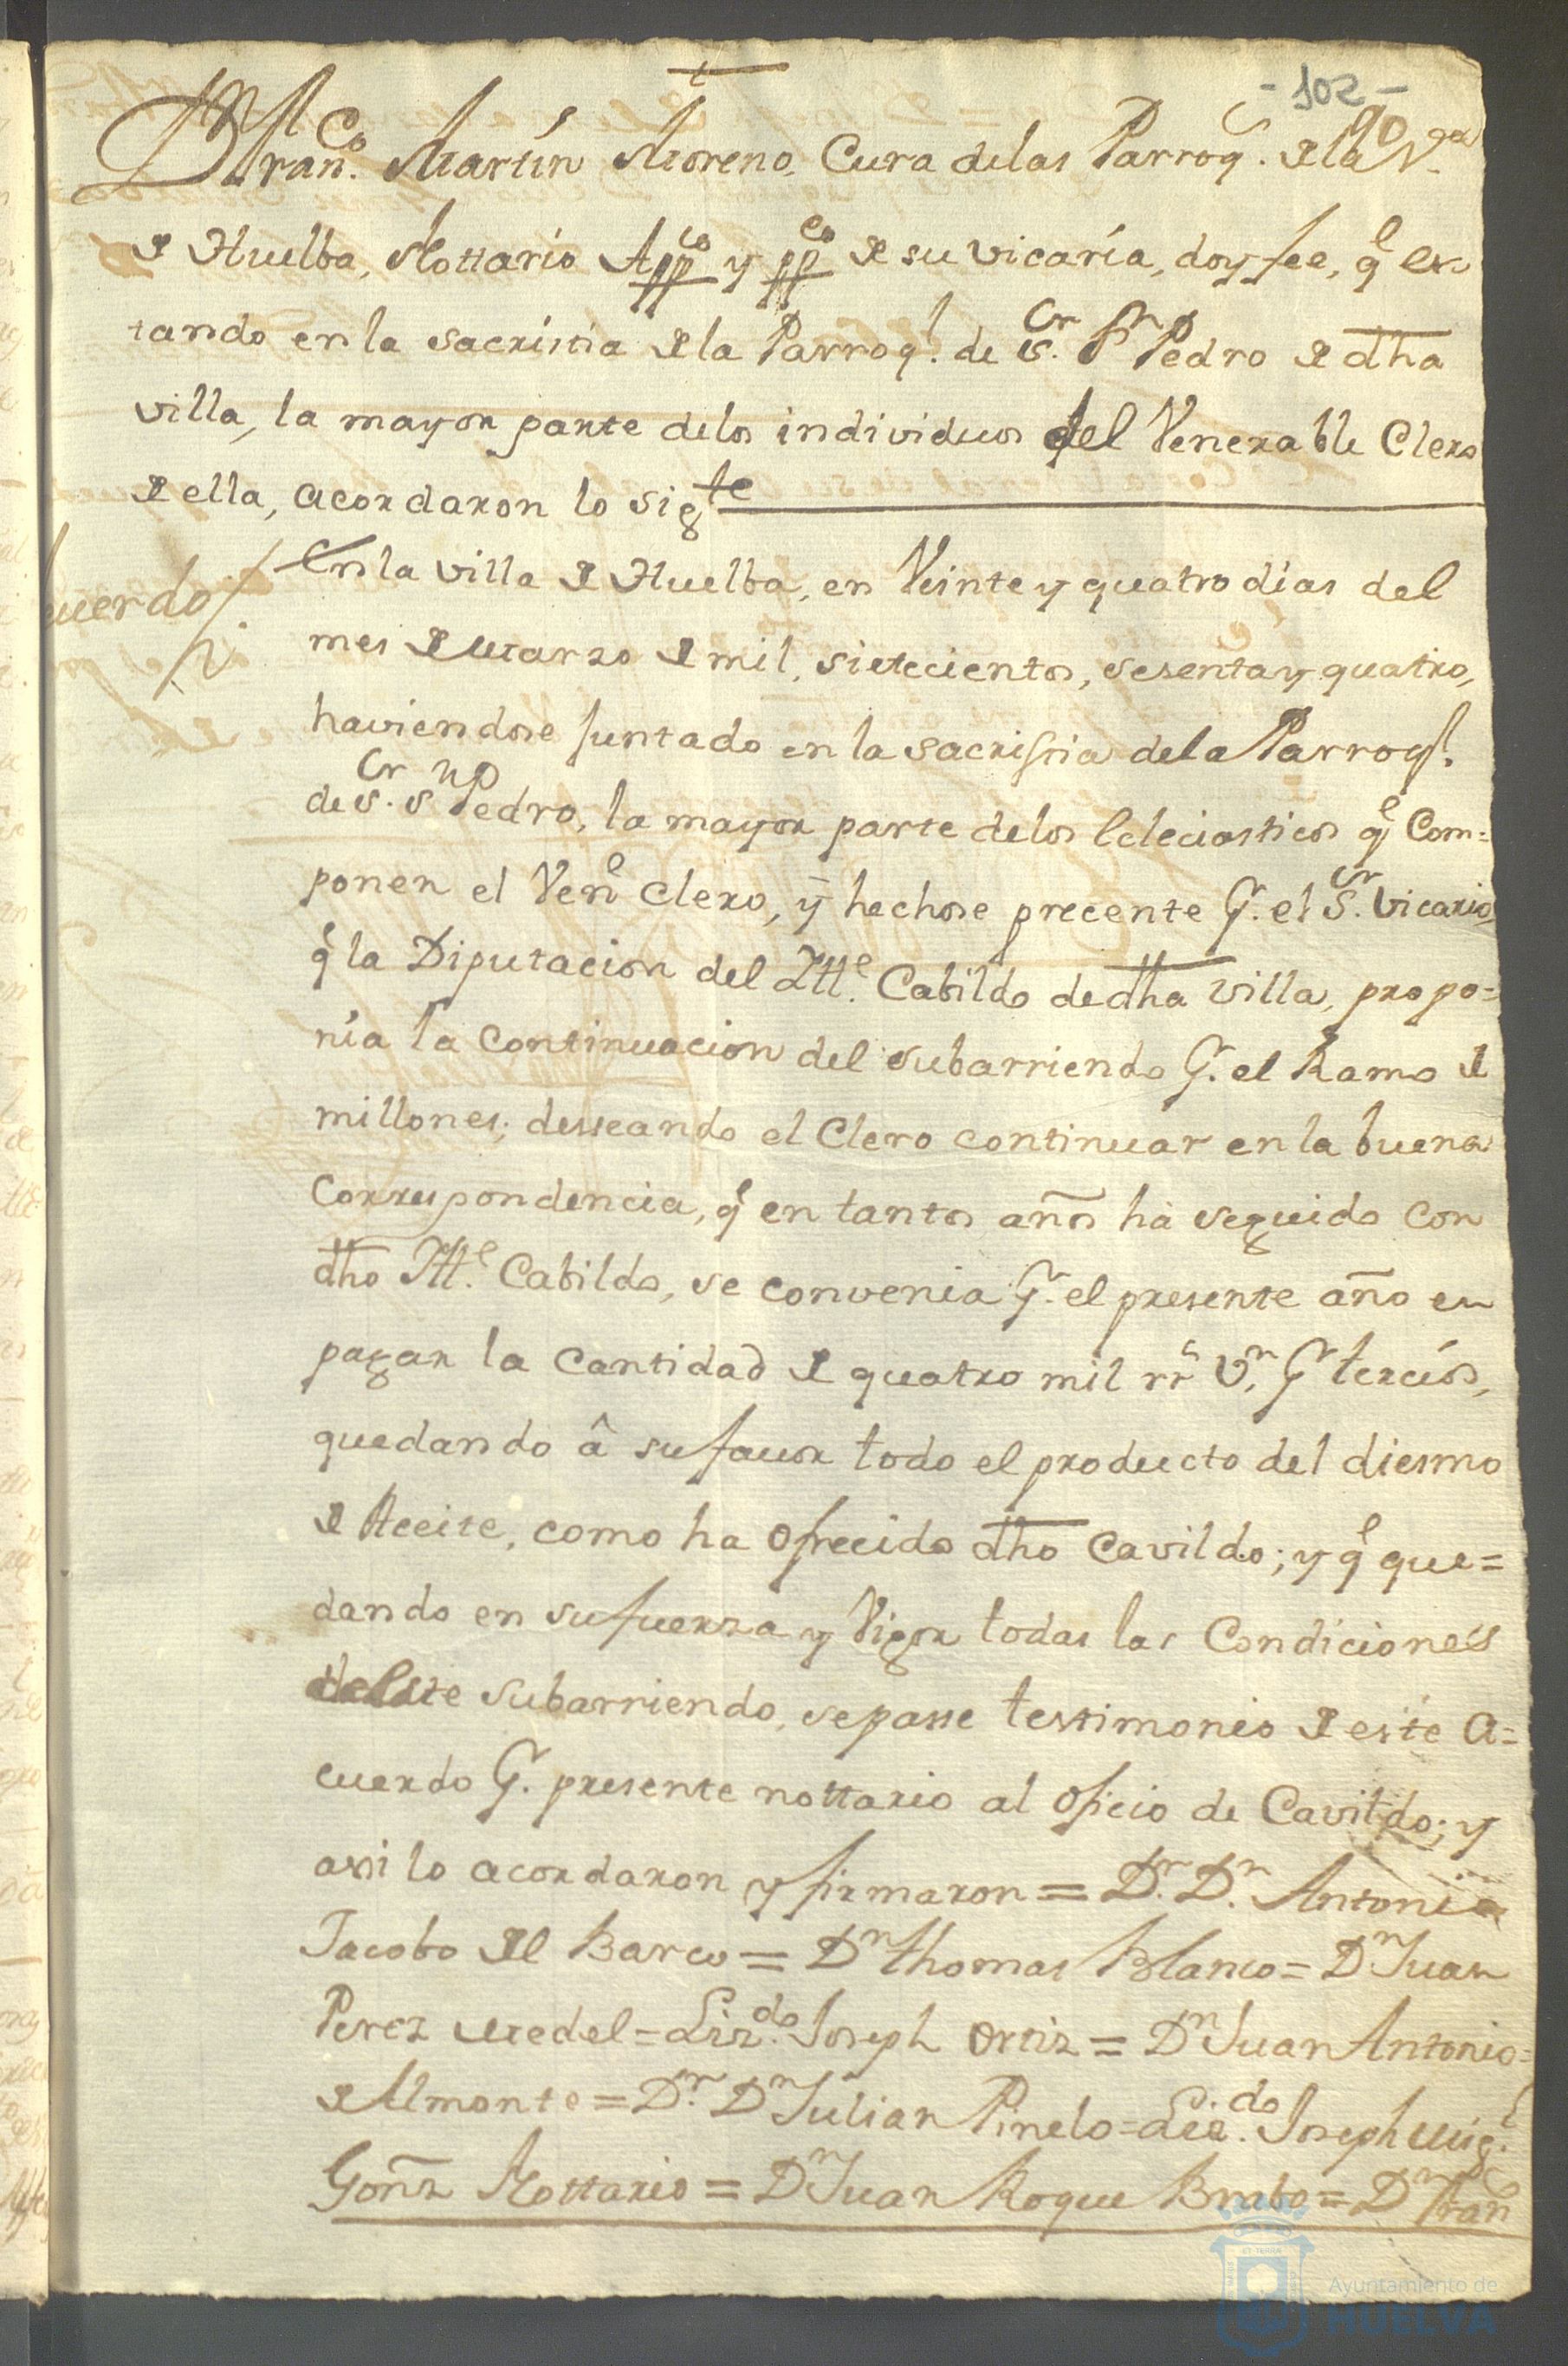 t
- 102 -
90
Dn Franco. Martín Moreno, Cura delas Parroqs. de la Va
de Huelba, Nottario Appco y ppco de su vicaría, doy fee, qe es
tando en la sacristia de la Parroql. de Sr. Sn Pedro de dha
villa, la mayor parte delos individuos del Venerable Clero
de ella, acordaron lo sigte
cuerdo
En la villa de Huelba, en Veinte y quatro días del
mes de Marzo de mil, sietecientos, sesenta y quatro,
haviendose juntado en la sacristia dela Parroql.
de Sr. Sn Pedro, la mayor parte delos Ecleciasticos qe Com=
ponen el Vene Clero, y hechose precente Pr. el Sr. Vicario,
qe la Diputacion del Ille. Cabildo de dha villa, propo=
nía la continuacion del subarriendo Pr. el Ramo de
millones; desseando el Clero continuar en la buena
Correspondencia, qe en tantos años ha seguido con
dho Ille. Cabildo, se convenia Pr. el presente año en
pagar la cantidad de quatro mil rrs Vn, Pr tercios,
quedando â su favor todo el producto del diesmo
de Aceite, como ha ofrecido dho Cavildo; y qe que=
dando en su fuerza y Vigor todas las Condiciones
deeste subarriendo, se passe testimonio de este A=
cuerdo Pr. presente nottario al oficio de Cavildo; y
assi lo acordaron y firmaron = Dr. Dn. Antonio
Jacobo del Barco = Dn Thomas Blanco = Dn Juan
Perez Medel = Lizdo. Joseph Ortiz = Dn Juan Antonio=
de Almonte = Dr. Dn Julian Pinelo = Licdo. Joseph Migl.
Gonz Nottario = Dn Juan Roque Brabo = Dn Franco
Ayuntamiento de
HUELVA